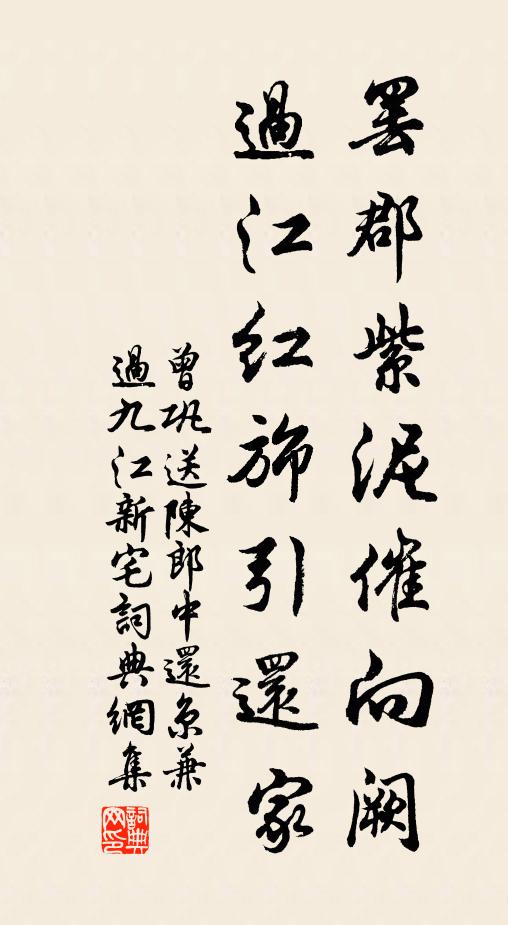 罷郡紫泥催向闕
過江紅旆引還家
曾鞏送陳郎中還京兼
過九江新宅詞典網集
詞典
网印